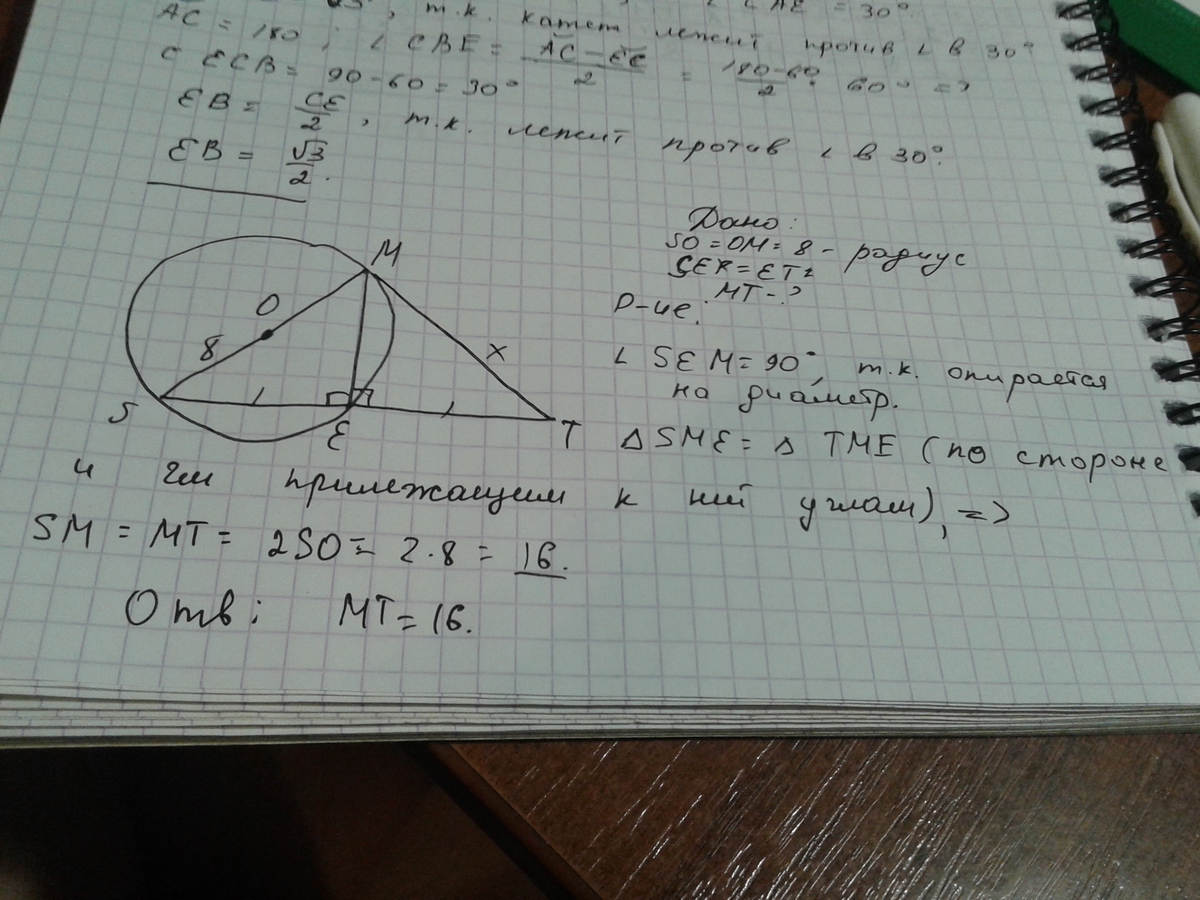 т.к. катет лежит против ∠ в 30°
AC = 180; ∠CBE = (AC – EC)/2 = (180-60)/2 = 60° =>
ECB = 90-60=30°
EB = CE/2, т.к. лежит против ∠ в 30°.
EB = √3/2.
Дано:
SO=OM=8 – радиус
MT-?
Р-ие:
M
O
8
x
S
E
T
∠SEM=90°, т.к. опирается
на диаметр.
△SME=△TME (по стороне
и прилежащим к ней углам), =>
SM = MT = 2SO = 2·8 = 16.
Отв: MT=16.